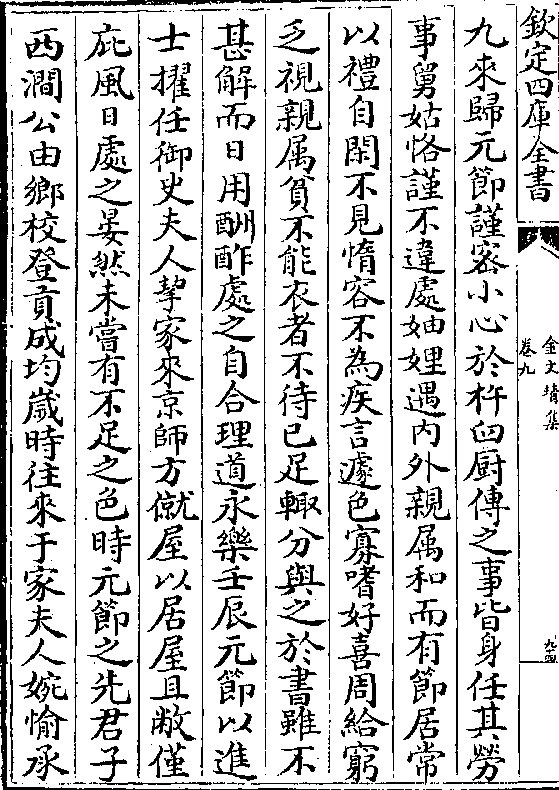 欽定四庫全書
金文靖集
卷九
九四
九來歸元節謹宻小心於杵臼厨傳之事皆身任其勞
事舅姑恪謹不違處妯娌遇内外親属和而有節居常
以禮自閑不見惰容不為疾言遽色寡嗜好喜周給窮
乏視親属貧不能衣者不待已足輙分與之於書雖不
甚解而日用酬酢處之自合理道永樂壬辰元節以進
士擢任御史夫人挈家來京師方僦屋以居屋且敝僅
庇風日處之晏然未嘗有不足之色時元節之先君子
西澗公由鄉校登貢成均嵗時往來于家夫人婉愉承